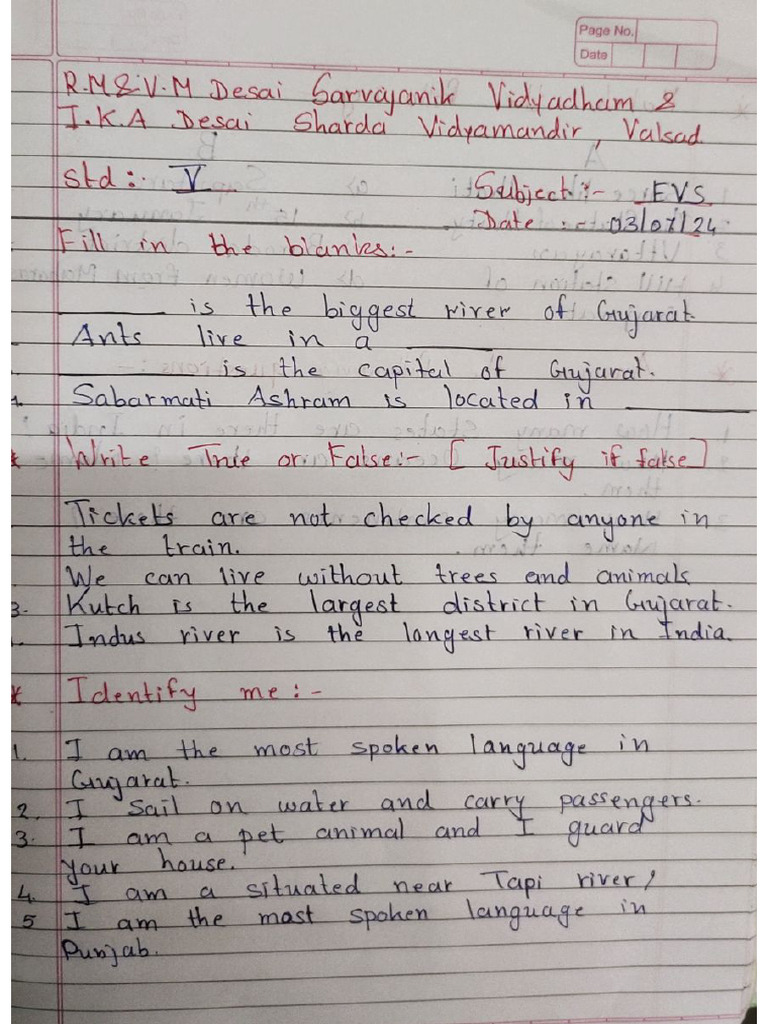 Page No.
Date
R.M & V.M Desai Sarvajanik Vidyadham &
I.K.A Desai Sharda Vidyamandir, Valsad
Std :- V Subject :- EVS
Date :- 03/07/24
Fill in the blanks :-
________ is the biggest river of Gujarat.
Ants live in a ________
________ is the capital of Gujarat.
Sabarmati Ashram is located in ________
* Write True or False :- [ Justify if false ]
Tickets are not checked by anyone in
the train.
We can live without trees and animals.
3. Kutch is the largest district in Gujarat.
Indus river is the longest river in India.
* Identify me :-
1. I am the most spoken language in
Gujarat.
2. I sail on water and carry passengers.
3. I am a pet animal and I guard
your house.
4. I am a situated near Tapi river
5 I am the most spoken language in
Punjab.